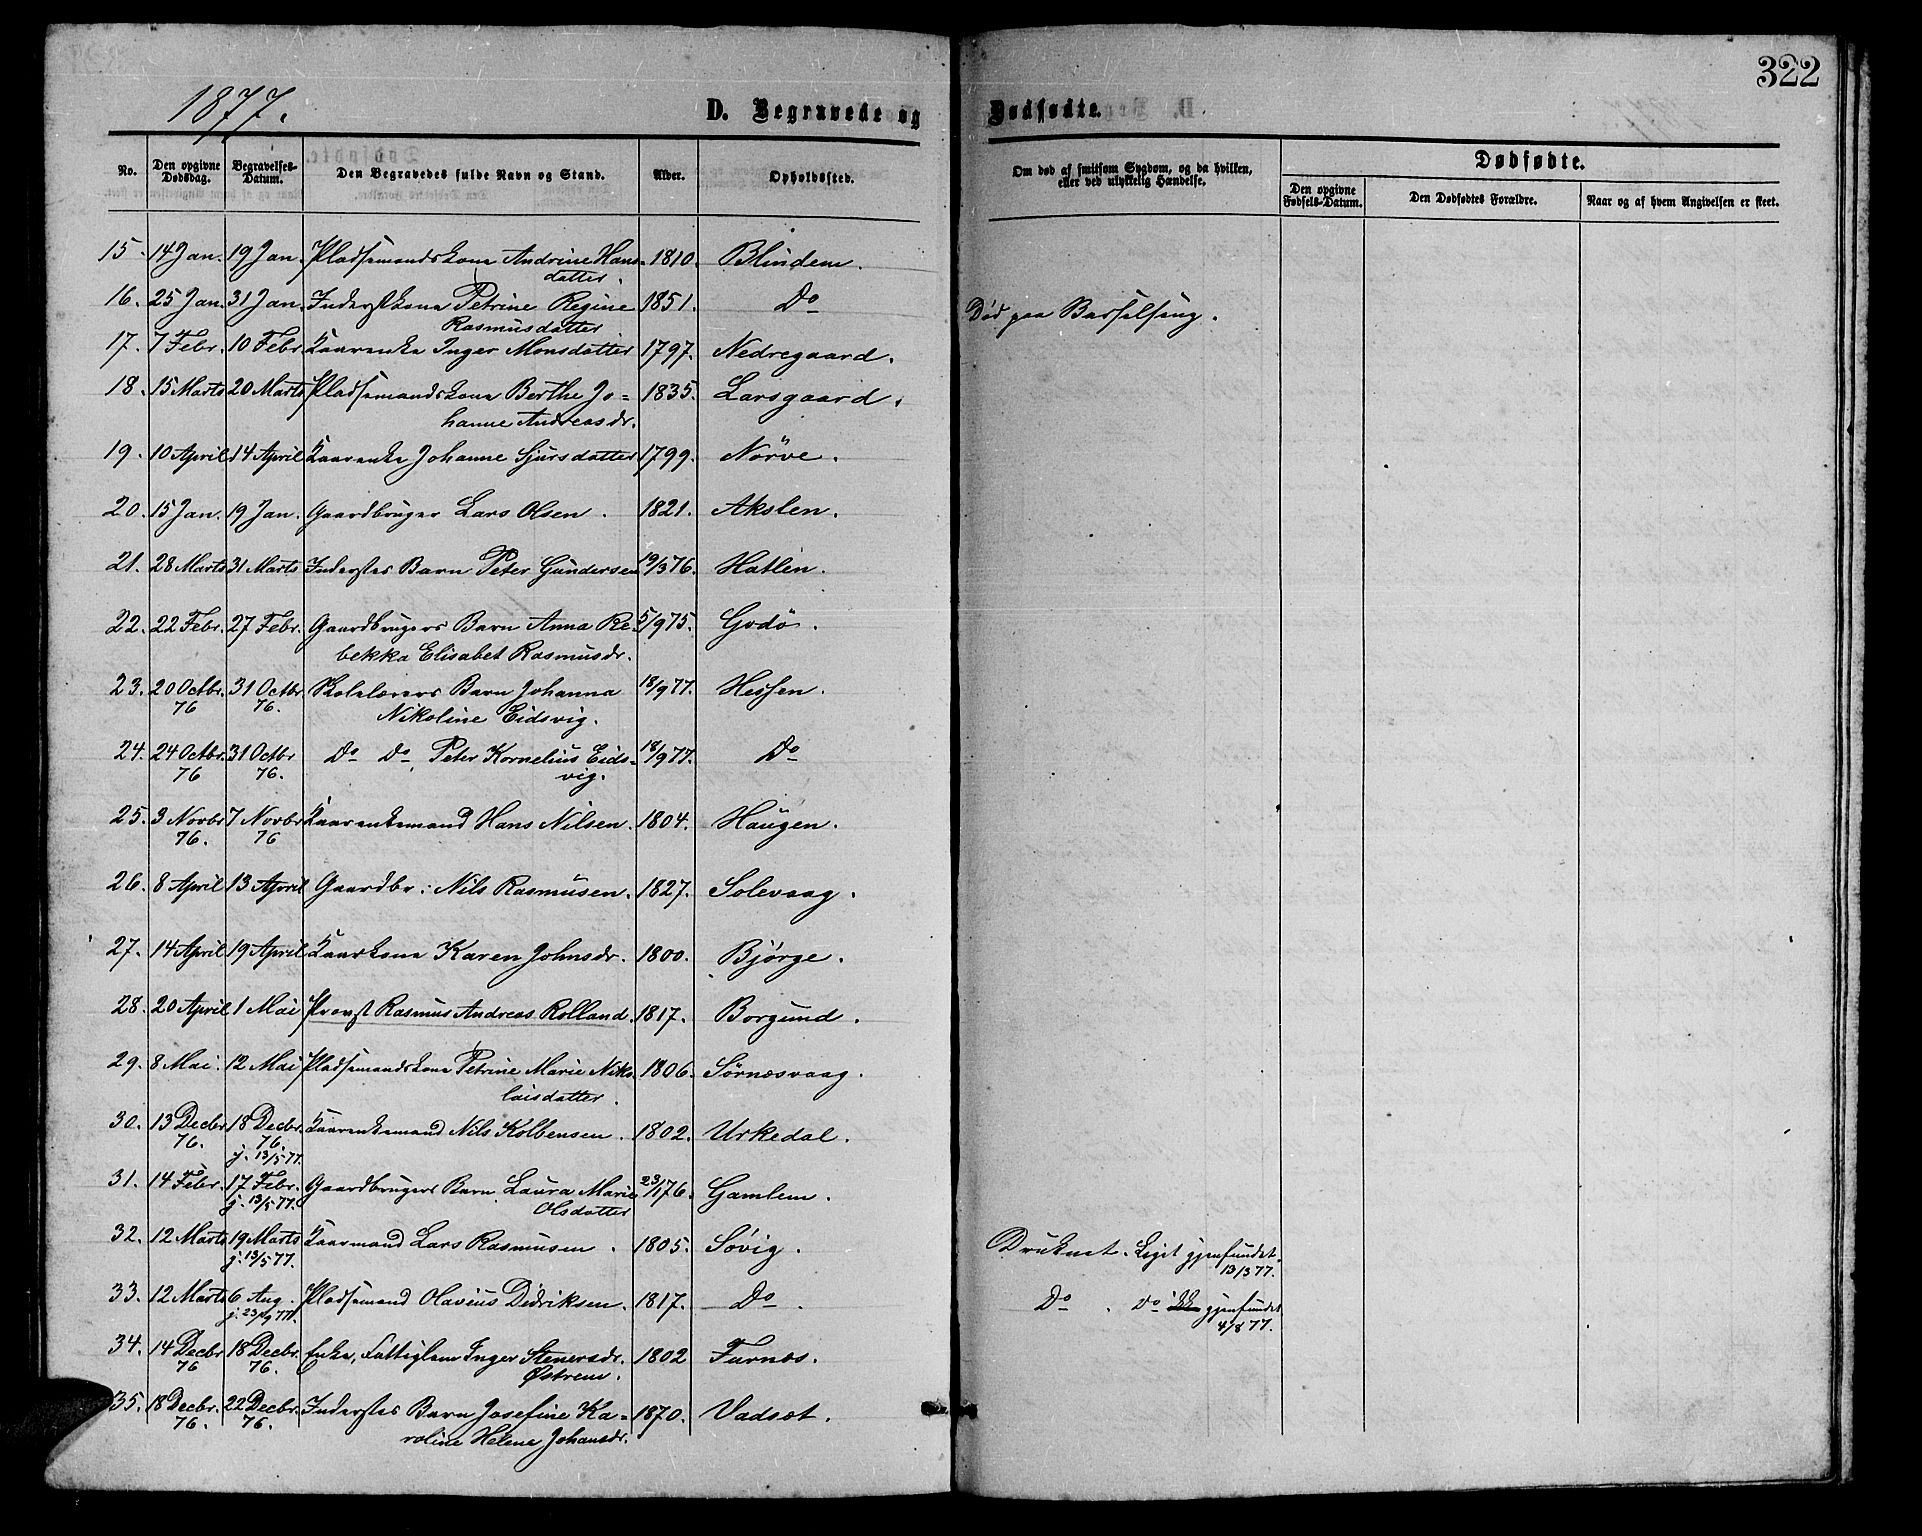 322
1877.
D. Begravede og Dødfødte.
No. Den opgivne Dødsdag. Begravelses-Datum. Den Begravedes fulde Navn og Stand. Alder. Opholdssted. Om død af smitsom Sygdom, og da hvilken, eller ved ulykkelig Hændelse. Dødfødte.
Den opgivne Fødsels-Datum. Den Dødfødtes Forældre. Naar og af hvem Angivelsen er skeet.
15. 14 Jan. 19 Jan. Pladsemandskone Andrine Hans- 1810. Blindem.
datter.
16. 25 Jan. 31 Jan. Inderstkone Petrine Regine 1851. Do Død paa Barselseng.
Rasmusdatter
17. 7 Febr. 10 Febr Kaarenke Inger Monsdatter 1797. Nedregaard.
18. 15 Marts 20 Marts Pladsemandskone Berthe Jo= 1835. Larsgaard.
hanne Andreasdr.
19. 10 April 14 April Kaarenke Johanne Sjursdatter 1799. Nörve.
20. 15 Jan. 19 Jan. Gaardbruger Lars Olsen. 1821. Akslen.
21. 28 Marts 31 Marts Inderstes Barn Peter Gundersen 19/3 76. Hatlen.
22. 22 Febr. 27 Febr. Gaardbrugers Barn Anna Re- 5/9 75. Godö.
bekka Elisabet Rasmusdr.
23. 20 Octbr. 31 Octbr Skolelærers Barn Johanna 18/9 77. Hessen.
76 76. Nikoline Eidsvig.
24. 24 Octbr. 31 Octbr Do Do Peter Kornelius Eids- 18/9 77. Do
76 76. vig.
25. 3 Novbr 7 Novbr Kaarenkemand Hans Nilsen. 1804. Haugen.
76. 76
26. 8 April 13 April Gaardbr: Nils Rasmusen. 1827. Solevaag.
27. 14 April 19 April Kaarkone Karen Johnsdr. 1800. Bjørge.
28. 20 April 1 Mai Provst Rasmus Andreas Rolland. 1817. Borgund.
29. 8 Mai. 12 Mai Pladsemandskone Petrine Marie Niko- 1806. Sørnæsvaag.
laisdatter.
30. 13 Decbr 18 Decbr. Kaarenkemand Nils Kolbensen. 1802. Urkedal.
76. 76.
j. 13/5 77.
31. 14 Febr. 17 Febr. Gaardbrugers Barn Laura Marie 23/1 76. Gamlem.
j. 13/5 77. Olsdatter
32. 12 Marts 19 Marts Kaarmand Lars Rasmusen. 1805. Søvig. Druknet. Liget gjenfundet
j. 13/5 77. 13/3 77.
33. 12 Marts 6 Aug. Pladsemand Olavius Didriksen. 1817. Do. Do. Do gjenfundet
4/8 77.
34. 14 Decbr 18 Decbr. Enke, Fattiglem Inger Stenersdr. 1802 Furnes.
76 76. Østrem.
35. 18 Decbr. 22 Decbr. Inderstes Barn Josefine Ka= 1870. Vadset.
76. 76. roline Helene Johansdr.